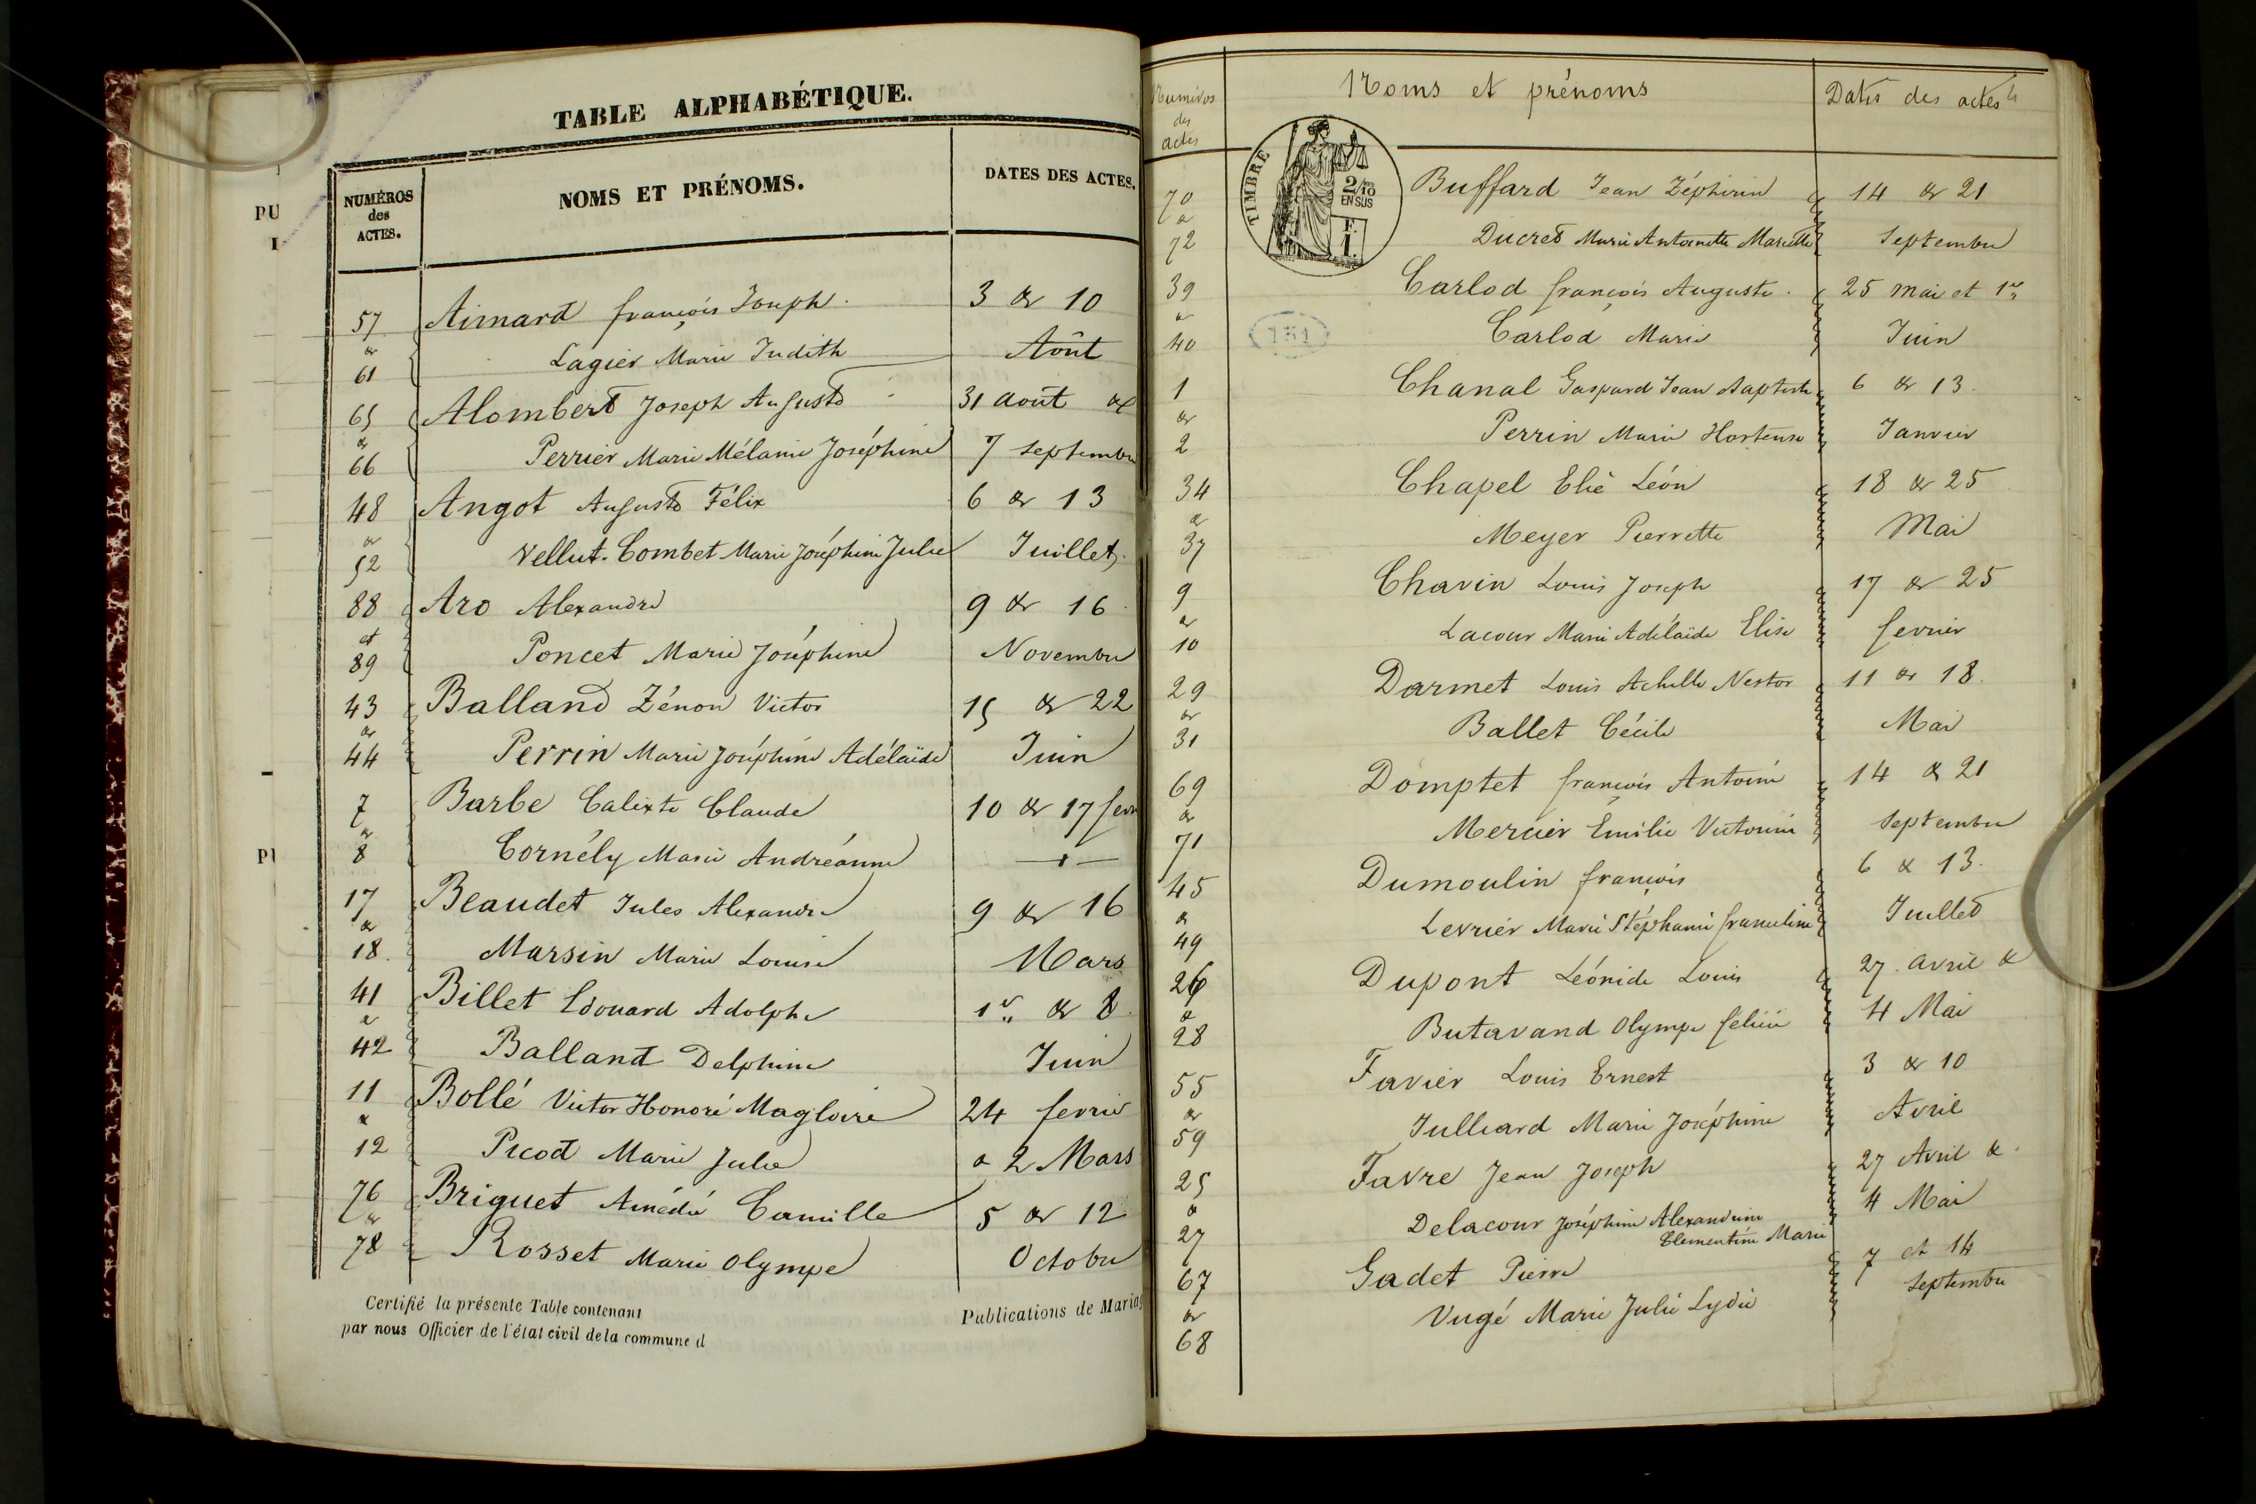 TABLE ALPHABÉTIQUE.
NUMÉROS des ACTES. NOMS ET PRÉNOMS. DATES DES ACTES.
57 Aimard françois Joseph 3 & 10
& 61 Lagier Marie Judith Août
65 Alombert Joseph Auguste 31 août &
& 66 Perrier Marie Mélanie Joséphine 7 septembre
48 Angot Auguste Félix 6 & 13
& 52 Vellut-Combet Marie Joséphine Julie Juillet
88 Aro Alexandre 9 & 16
et 89 Poncet Marie Joséphine Novembre
43 Balland Zénon Victor 15 & 22
& 44 Perrin Marie Joséphine Adélaïde Juin
7 Barbe Calixte Claude 10 & 17 fevr
& 8 Cornély Marie Andréanne
17 Beaudet Jules Alexandre 9 & 16
& 18 Marsin Marie Louise Mars
41 Billet Edouard Adolphe 1er & 8
& 42 Balland Delphine Juin
11 Bollé Victor Honoré Magloire 24 fevrier
& 12 Picod Marie Julie & 2 Mars
76 Briguet Amédée Camille 5 & 12
& 78 Rosset Marie Olympe Octobre
Certifié la présente Table contenant Publications de Maria
par nous Officier de l'état civil de la commune d
Numéros des actes Noms et prénoms Dates des actes
TIMBRE 2/10 EN SUS
70 Buffard Jean Zéphirin 14 & 21
& 72 Ducret Marie Antoinette Marcelle Septembre
39 Carlod françois Auguste 25 mai et 1er
& 40 Carlod Marie Juin
1 Chanal Gaspard Jean Baptiste 6 & 13
& 2 Perrin Marie Hortense Janvier
34 Chapel Elie Léon 18 & 25
& 37 Meyer Pierrette Mai
9 Chavin Louis Joseph 17 & 25
& 10 Lacour Marie Adélaïde Elise fevrier
29 Darmet Louis Achille Nestor 11 & 18
& 31 Ballet Cécile Mai
69 Domptet françois Antoine 14 & 21
& 71 Mercier Emilie Victorine Septembre
45 Dumoulin françois 6 & 13
& 49 Levrier Marie Stéphanie franceline Juillet
26 Dupont Léonide Louis 27 avril &
& 28 Butavand Olympe félicie 4 Mai
55 Favier Louis Ernest 3 & 10
& 59 Julliard Marie Joséphine Avril
25 Favre Jean Joseph 27 Avril &
& 27 Delacour Joséphine Alexandrine Clementine Marie 4 Mai
67 Gadet Pierre 7 et 14
& 68 Vugé Marie Julie Lydie Septembre